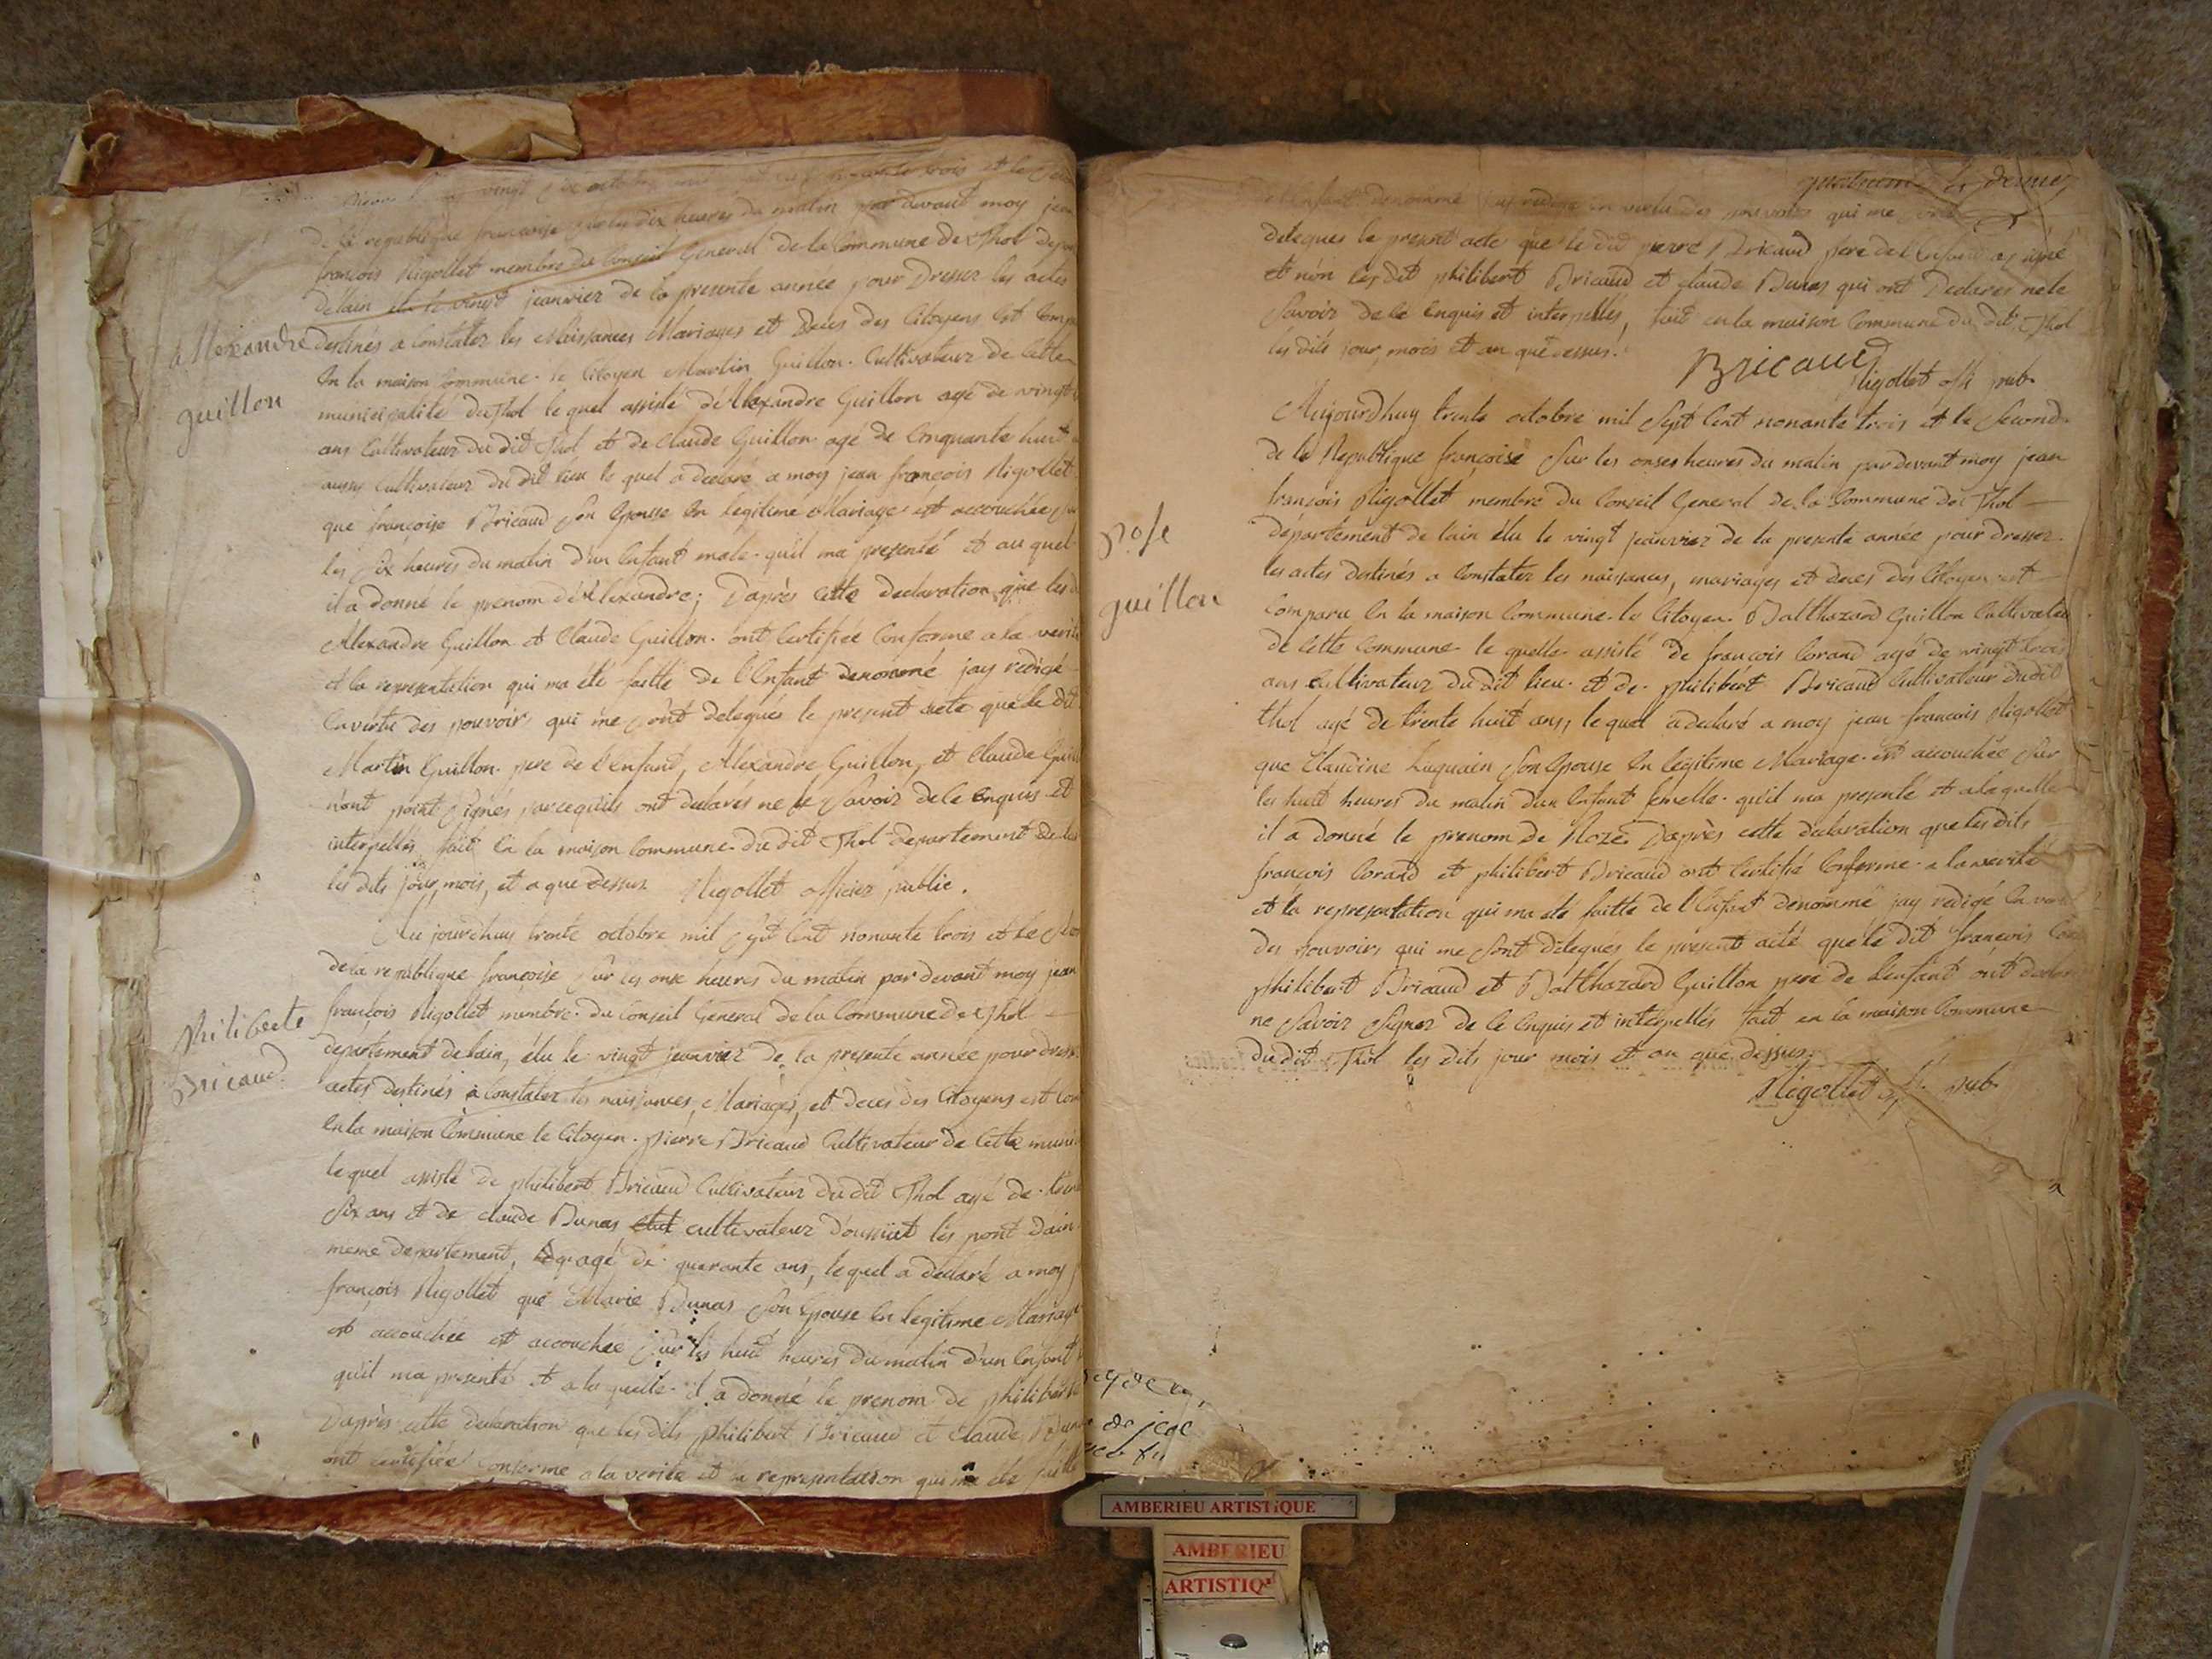 vingt six octobre mil sept cent nonante trois et le
de la republique françoise sur les dix heures du matin par devant moy jean
françois Rigollet membre du Conseil General de la Commune de Thol
delain elu le vingt jeanvier de la presente année pour Dresser les actes
Alexandre
guillon
destinés a Constater les Naissances Mariages et Deces des Citoyens est
En la maison Commune le Citoyen Martin Guillon Cultivateur de Cette
municipalité du Thol le quel assisté de Alexandre Guillon agé de vingt
ans Cultivateur du dit Thol et de Claude Guillon agé de Cinquante huit
aussy Cultivateur du dit lieu le quel a declaré a moy jean françois Rigollet
que françoise Bricaud son Epouse En legitime Mariage est accouchée
les dix heures du matin d'un Enfant male qu'il ma presenté et au quel
il a donné le prenom de Alexandre; D'après Cette declaration que les
Alexandre Guillon et Claude Guillon ont Certifiée Conforme a la verité
et la representation qui ma été faitte de l'Enfant denommé jay redigé
En vertu des pouvoirs qui me sont delegués le present acte que le dit
Martin Guillon pere de l'Enfant, Alexandre Guillon, et Claude
n'ont point signés parcequils ont declarés ne le Savoir de Ce Enquis et
interpellés fait En la maison Commune du dit Thol departement de
les dits jour, mois, et a que dessus Rigollet officier public.
Au jourdhuy trente octobre mil sept Cent nonante trois et le
de la republique françoise sur les onze heures du matin par devant moy jean
Philiberte
Bricaud
françois Rigollet membre du Conseil General de la Commune de Thol
departement delain, élu le vingt jeanvier de la presente année pour
actes destinés a Constater les naissances, Mariages, et deces des Citoyens est
En la maison Commune le Citoyen pierre Bricaud Cultivateur de Cette
le quel assisté de philibert Bricaud Cultivateur du dit Thol agé de
Six ans et de claude Bunas cultivateur d'oussiat les pont dain
meme departement, agé de quarante ans, le quel a declaré a moy
françois Rigollet que Marie Bunas Son Epouse En legitime Mariage
est accouchée est accouchée sur les huit heures du matin d'un Enfant
qu'il ma presenté et a la quelle il a donné le prenom de philiberte
D'après cette declaration que les dits philibert Bricaud et Claude
ont certifiée conforme a la verité et la representation qui ma été faitte
quatrieme et dernier
l'enfant denommé jay redigé en vertu des pouvoirs qui me sont
delegues le present acte que le dit pierre Bricaud pere de l'Enfant a signé
et non les dit philibert Bricaud et claude Bunas qui ont Declares ne le
Savoir de Ce Enquis et interpellés, fait en la maison Commune du dit Thol
les dits jour, mois et an que dessus.
Bricaud
Rigollet off pub
Aujourdhuy trente octobre mil Sept Cent nonante trois et le Second
de la Republique françoise Sur les onses heures du matin par devant moy jean
françois Rigollet membre du Conseil General de la Commune de Thol
Rose
guillon
département de lain élu le vingt jeanvier de la presente année pour dresser
les actes destinés a Constater les naissances, mariages et deces des Citoyen est
Comparu En la maison Commune le Citoyen Balthazard Guillon
de Cette Commune le quelle assisté de françois Corand agé de vingt trois
ans Cultivateur du dit lieu et de philibert Bricaud Cultivateur du dit
thol agé de trente huit ans, le quel a declaré a moy jean françois Rigollet
que Claudine Son Epouse En legitime Mariage est accouchée Sur
les huit heures du matin d'un Enfant femelle qu'il ma presenté et a laquelle
il a donné le prenom de Roze. D'après cette declaration que les dits
françois Corand et philibert Bricaud ont Certifié Conforme a la verité
et la representation qui ma été faitte de l'Enfant denommé jay redigé En
des pouvoirs qui me sont délegués le present acte que le dit françois
philibert Bricaud et Balthazard Guillon pere de l'enfant ont
ne Savoir Signer de Ce Enquis et interpellés fait en la maison Commune
du dit Thol les dits jour mois et an que dessus.
Rigollet off. pub
AMBERIEU ARTISTIQUE
AMBERIEU
ARTISTIQ